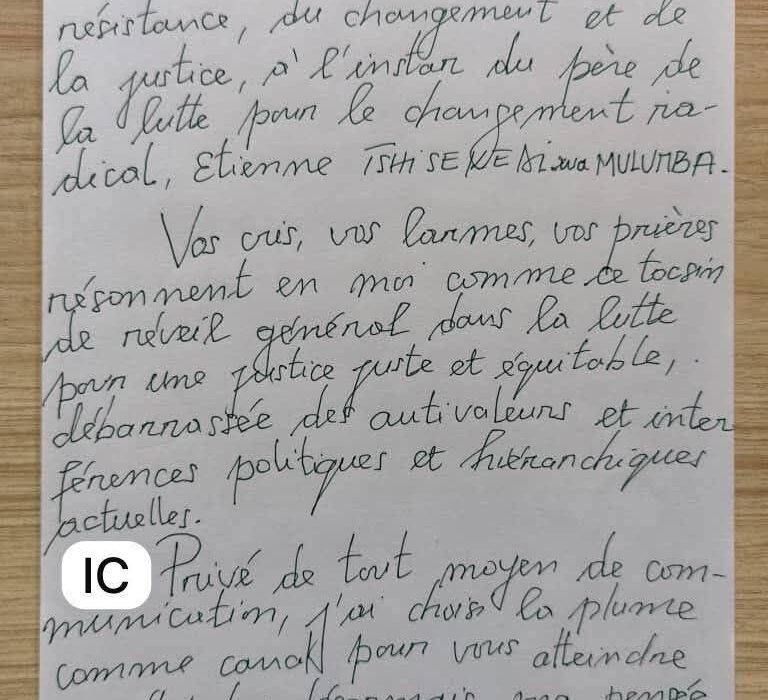 résistance, du changement et de
la justice, à l'instar du père de
la lutte pour le changement ra-
dical, Etienne TSHISEKEDI wa MULUMBA.
Vos cris, vos larmes, vos prières
résonnent en moi comme le tocsin
de réveil général dans la lutte
pour une justice juste et équitable,
débarrassée des antivaleurs et inter
férences politiques et hiérarchiques
actuelles.
IC Privé de tout moyen de com-
munication, j'ai choisi la plume
comme canal pour vous atteindre
désormais ma pensée